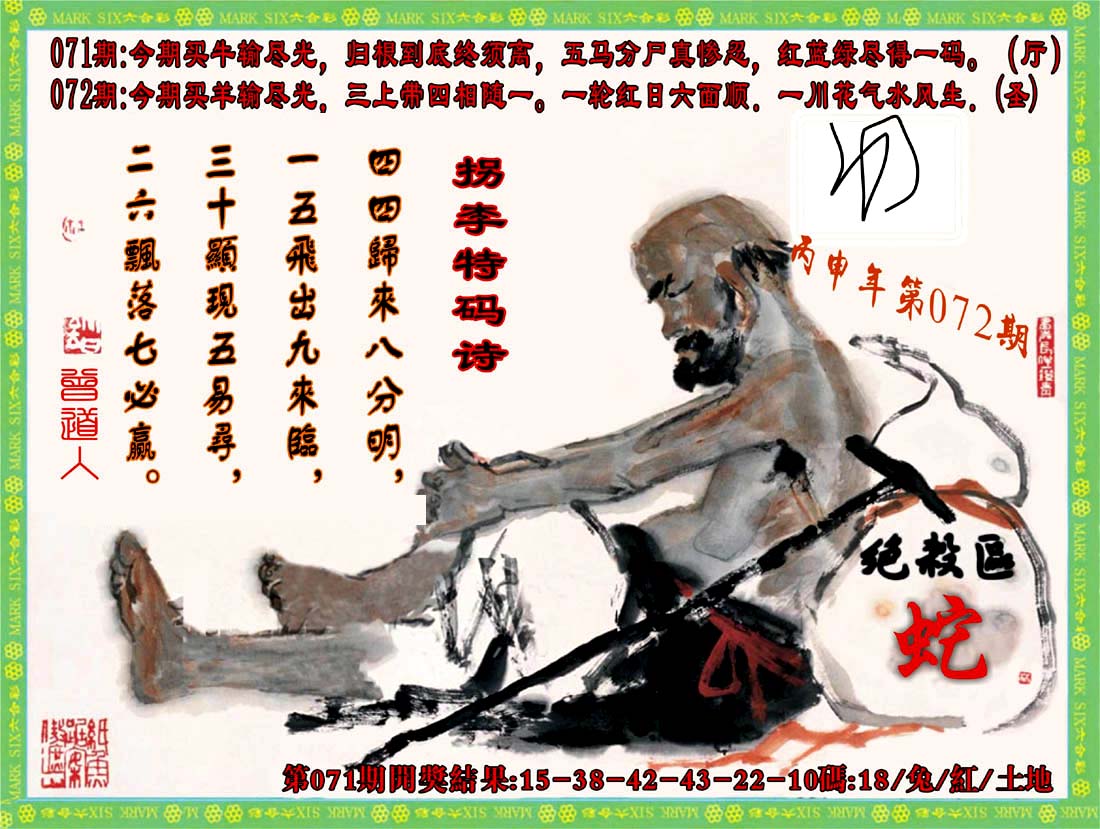 071期:今期买牛输尽光，归根到底终须离，五马分尸真惨忍，红蓝绿尽得一码。(厅)
072期:今期买羊输尽光，三上带四相随一。一轮红日六面顺，一川花气水风生，(圣)
拐李特码诗
四四歸來八分明，
一五飛出九來臨，
三十顯現五易尋，
二六飄落七必贏。
丙申年第072期
曾道人
绝殺區
蛇
第071期開獎結果:15-38-42-43-22-10碼:18/兔/紅/土地
MARK SIX六合彩